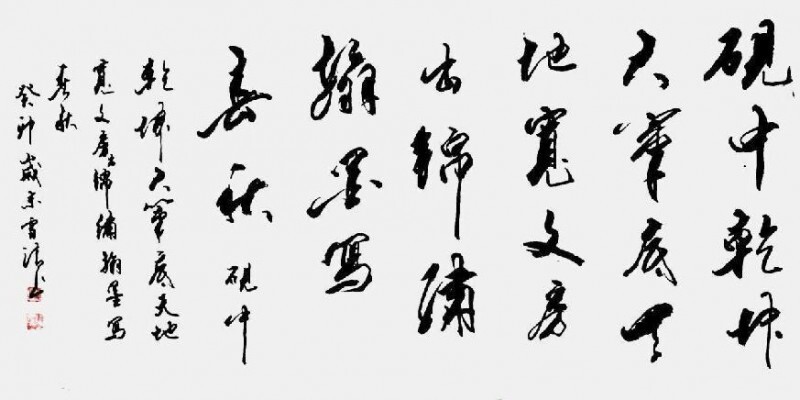 硯中乾坤
大筆底天
地寬文房
出錦繡
翰墨寫
春秋 硯中
乾坤大筆底天地
寬文房出錦繡翰墨寫
春秋
癸卯歲末雪濤書